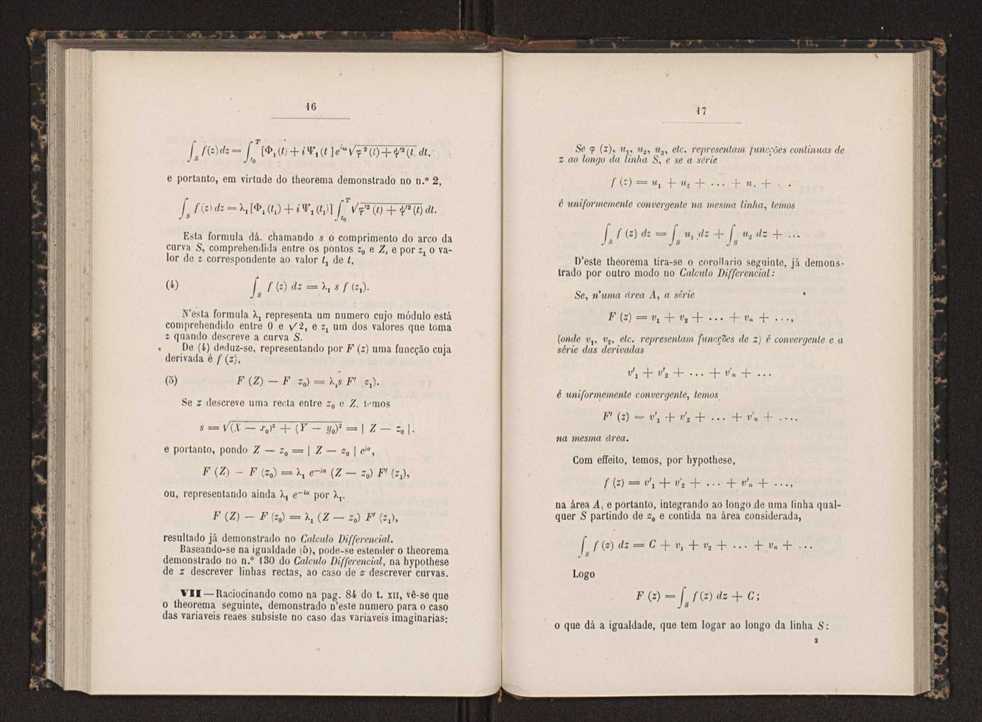 16
∫_S f(z) dz = ∫_{t_0}^T [Φ_1(t) + i Ψ_1(t] e^{iω} √(φ'²(t) + ψ'²(t) dt,
e portanto, em virtude do theorema demonstrado no n.º 2,
∫_S f(z) dz = λ_1 [Φ_1(t_1) + i Ψ_1(t_1)] ∫_{t_0}^T √(φ'²(t) + ψ'²(t)) dt.
Esta formula dá, chamando s o comprimento do arco da
curva S, comprehendida entre os pontos z_0 e Z, e por z_1 o va-
lor de z correspondente ao valor t_1 de t,
(4) ∫_S f(z) dz = λ_1 s f(z_1).
N'esta formula λ_1 representa um numero cujo módulo está
comprehendido entre 0 e √2, e z_1 um dos valores que toma
z quando descreve a curva S.
De (4) deduz-se, representando por F(z) uma funcção cuja
derivada é f(z),
(5) F(Z) — F z_0) = λ_1 s F' z_1).
Se z descreve uma recta entre z_0 e Z, temos
s = √((X — x_0)² + (Y — y_0)²) = | Z — z_0 |.
e portanto, pondo Z — z_0 = | Z — z_0 | e^{iα},
F(Z) — F(z_0) = λ_1 e^{—iα} (Z — z_0) F'(z_1),
ou, representando ainda λ_1 e^{—iα} por λ_1,
F(Z) — F(z_0) = λ_1 (Z — z_0) F'(z_1),
resultado já demonstrado no Calculo Differencial.
Baseando-se na igualdade (5), pode-se estender o theorema
demonstrado no n.º 130 do Calculo Differencial, na hypothese
de z descrever linhas rectas, ao caso de z descrever curvas.
VII — Raciocinando como na pag. 84 do t. XII, vê-se que
o theorema seguinte, demonstrado n'este numero para o caso
das variaveis reaes subsiste no caso das variaveis imaginarias:
17
Se φ (z), u_1, u_2, u_3, etc. representam funcções continuas de
z ao longo da linha S, e se a série
f(z) = u_1 + u_2 + ... + u. + . .
é uniformemente convergente na mesma linha, temos
∫_S f(z) dz = ∫_S u_1 dz + ∫_S u_2 dz + ...
D'este theorema tira-se o corollario seguinte, já demons-
trado por outro modo no Calculo Differencial:
Se, n'uma área A, a série
F(z) = v_1 + v_2 + ... + v_n + ...,
(onde v_1, v_2, etc. representam funcções de z) é convergente e a
série das derivadas
v'_1 + v'_2 + ... + v'_n + ...
é uniformemente convergente, temos
F'(z) = v'_1 + v'_2 + ... + v'_n + ...,
na mesma área.
Com effeito, temos, por hypothese,
f(z) = v'_1 + v'_2 + ... + v'_n + ...,
na área A, e portanto, integrando ao longo de uma linha qual-
quer S partindo de z_0 e contida na área considerada,
∫_S f(z) dz = C + v_1 + v_2 + ... + v_n + ...
Logo
F(z) = ∫_S f(z) dz + C;
o que dá a igualdade, que tem logar ao longo da linha S:
2